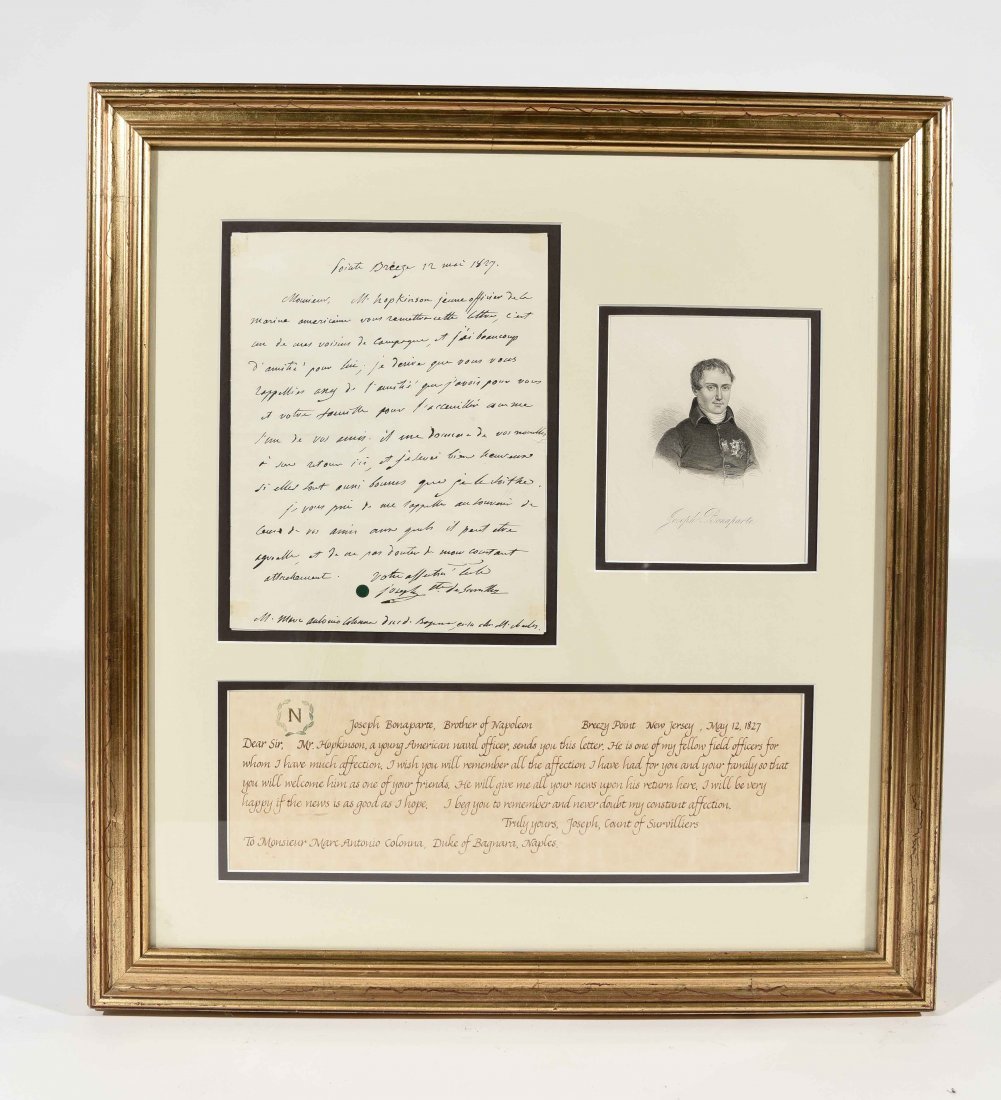 Pointe Breeze 12 mai 1827.
Monsieur, Mr hopkinson jeune officier de la
marine americaine vous remettra cette lettre, c'est
un de mes voisins de campagne, et j'ai beaucoup
d'amitié pour lui; je desire que vous vous
rappelliez assez de l'amitié que j'avois pour vous
et votre famille pour l'accueillir comme
l'un de vos amis. il me donnera de vos nouvelles
à son retour ici, et je serai bien heureux
si elles sont aussi bonnes que je le
je vous prie de me rappeller au souvenir de
ceux de vos amis aux quels il peut etre
agreable, et de ne pas douter de mon constant
attachement. votre affectionné
Joseph Cte de Survilliers
M. Marc Antonio Colonna duc di Bagnara
Joseph Bonaparte
N
Joseph Bonaparte, Brother of Napoleon Breezy Point New Jersey, May 12, 1827
Dear Sir, Mr. Hopkinson, a young American naval officer, sends you this letter. He is one of my fellow field officers for
whom I have much affection. I wish you will remember all the affection I have had for you and your family so that
you will welcome him as one of your friends. He will give me all your news upon his return here. I will be very
happy if the news is as good as I hope. I beg you to remember and never doubt my constant affection.
Truly yours, Joseph, Count of Survilliers
To Monsieur Marc Antonio Colonna, Duke of Bagnara, Naples.